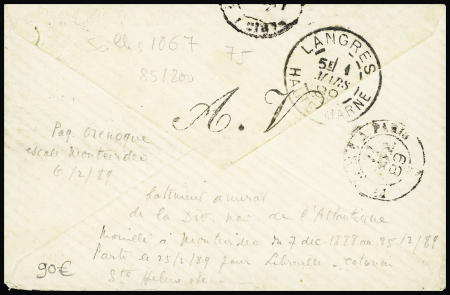 Salles 1067
75
85/200
LANGRES
5E 1
MARS
HAUTE MARNE
A. V.
A PARIS
Paq Orenoque
escale Montevideo
6/2/89
batiment amiral
de la Don nav de l'Atlantique
Mouillé à Montevideo du 7 dec 1888 au 25/2/89
Parti le 25/2/89 pour Libreville
Ste Hélène
90€